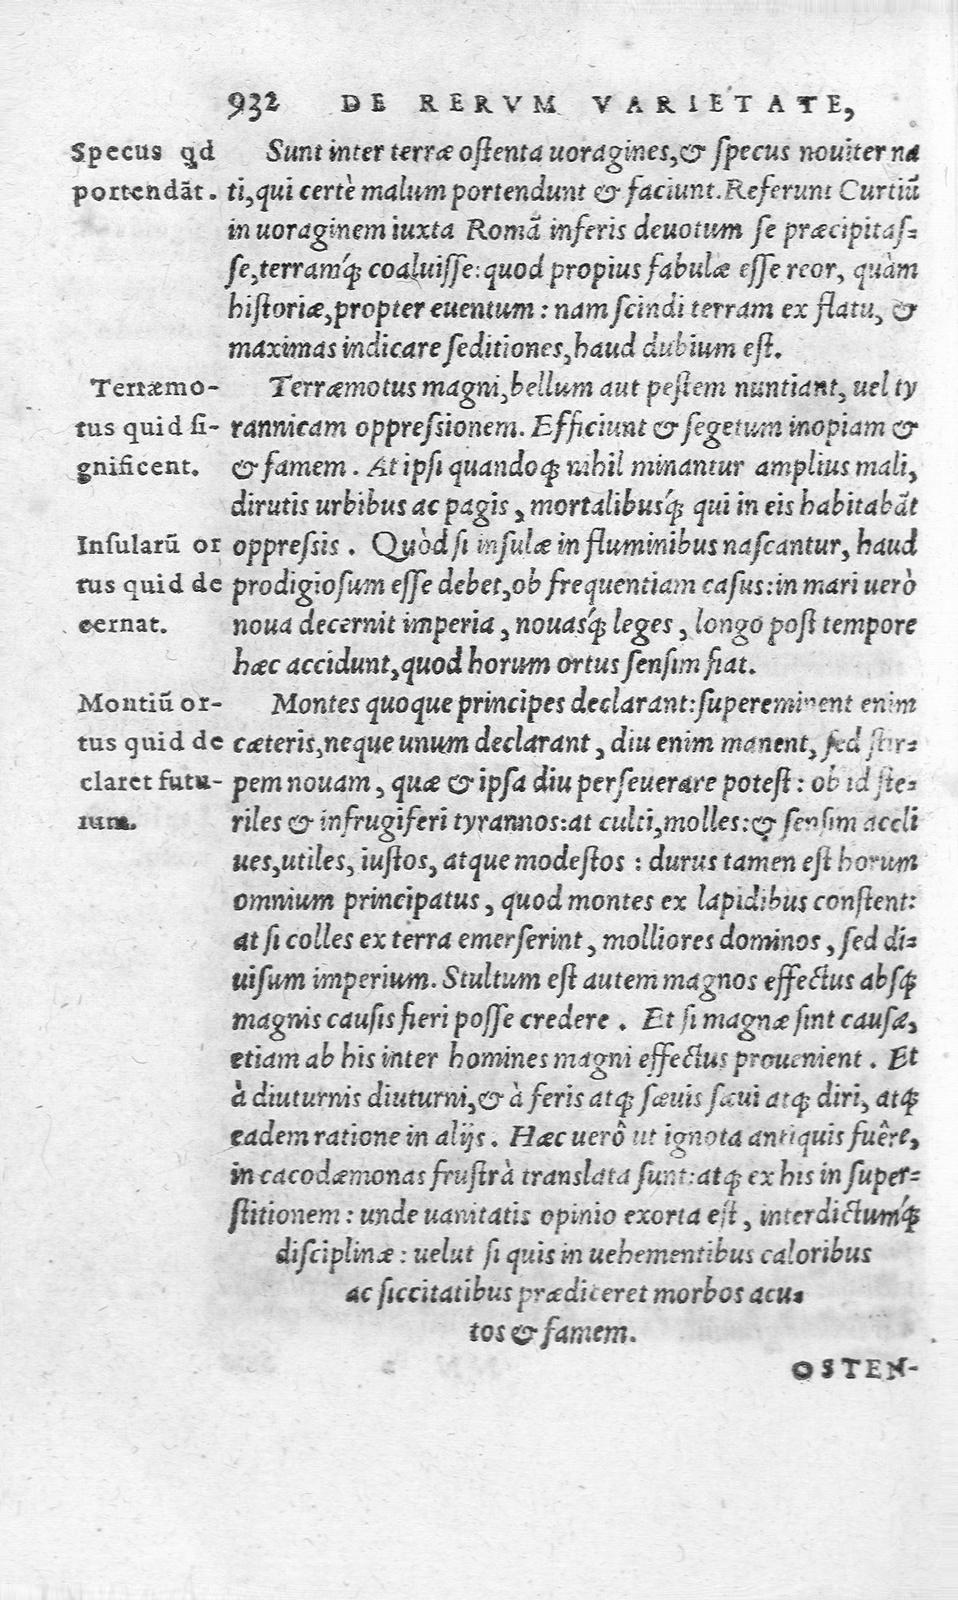 932 DE RERVM VARIETATE,
Specus qd
portendãt.
Sunt inter terræ ostenta uoragines, & specus nouiter na
ti, qui certè malum portendunt & faciunt. Referunt Curtiũ
in uoraginem iuxta Romã inferis deuotum se præcipitas=
se, terramq́; coaluisse: quod propius fabulæ esse reor, quàm
historiæ, propter euentum: nam scindi terram ex flatu, &
maximas indicare seditiones, haud dubium est.
Terræmo-
tus quid si-
gnificent.
Terræmotus magni, bellum aut pestem nuntiant, uel ty
rannicam oppressionem. Efficiunt & segetum inopiam &
& famem. At ipsi quandoq; nihil minantur amplius mali,
dirutis urbibus ac pagis, mortalibusq́; qui in eis habitabãt
Insularũ or
tus quid de
cernat.
oppressis. Quòd si insulæ in fluminibus nascantur, haud
prodigiosum esse debet, ob frequentiam casus: in mari uerò
noua decernit imperia, nouasq́; leges, longo post tempore
hæc accidunt, quod horum ortus sensim fiat.
Montiũ or-
tus quid de
claret futu-
rum.
Montes quoque principes declarant: supereminent enim
cæteris, neque unum declarant, diu enim manent, sed stir=
pem nouam, quæ & ipsa diu perseuerare potest: ob id ste=
riles & infrugiferi tyrannos: at culti, molles: & sensim accli
ues, utiles, iustos, atque modestos: durus tamen est horum
omnium principatus, quod montes ex lapidibus constent:
at si colles ex terra emerserint, molliores dominos, sed di=
uisum imperium. Stultum est autem magnos effectus absq;
magnis causis fieri posse credere. Et si magnæ sint causæ,
etiam ab his inter homines magni effectus prouenient. Et
à diuturnis diuturni, & à feris atq; sæuis sæui atq; diri, atq;
eadem ratione in alijs. Hæc uerô ut ignota antiquis fuêre,
in cacodæmonas frustrà translata sunt: atq; ex his in super=
stitionem: unde uanitatis opinio exorta est, interdictumq́;
disciplinæ: uelut si quis in uehementibus caloribus
ac siccitatibus prædiceret morbos acu=
tos & famem.
OSTEN-